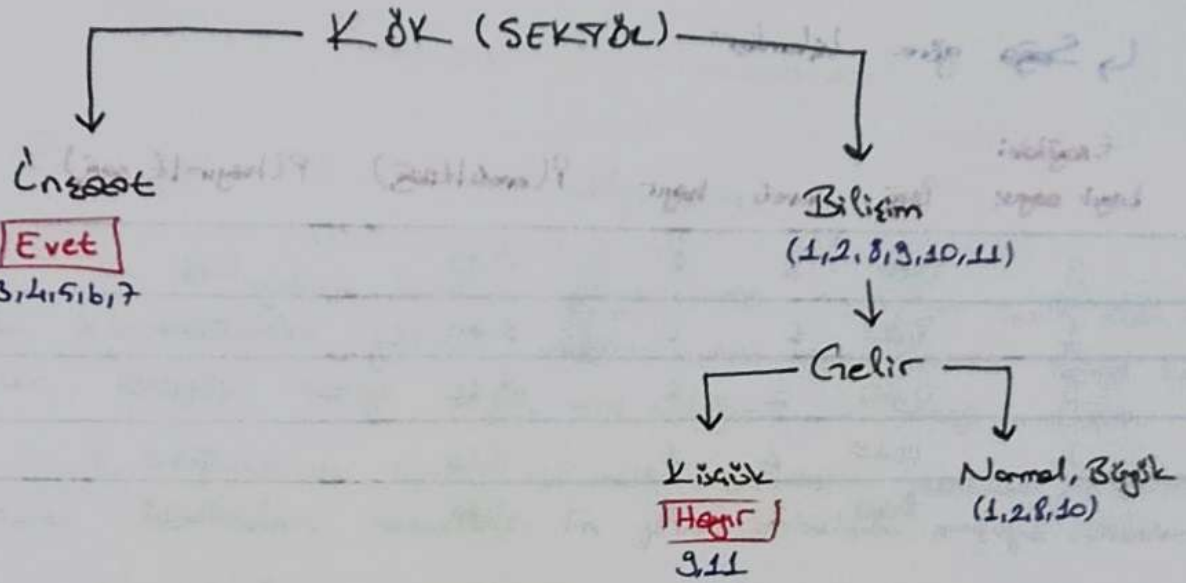 KÖK (SEKTÖR)
İnşaat
Evet
3,4,5,6,7
Bilişim
(1,2,8,9,10,11)
Gelir
Küçük
Hayır
9,11
Normal, Büyük
(1,2,8,10)